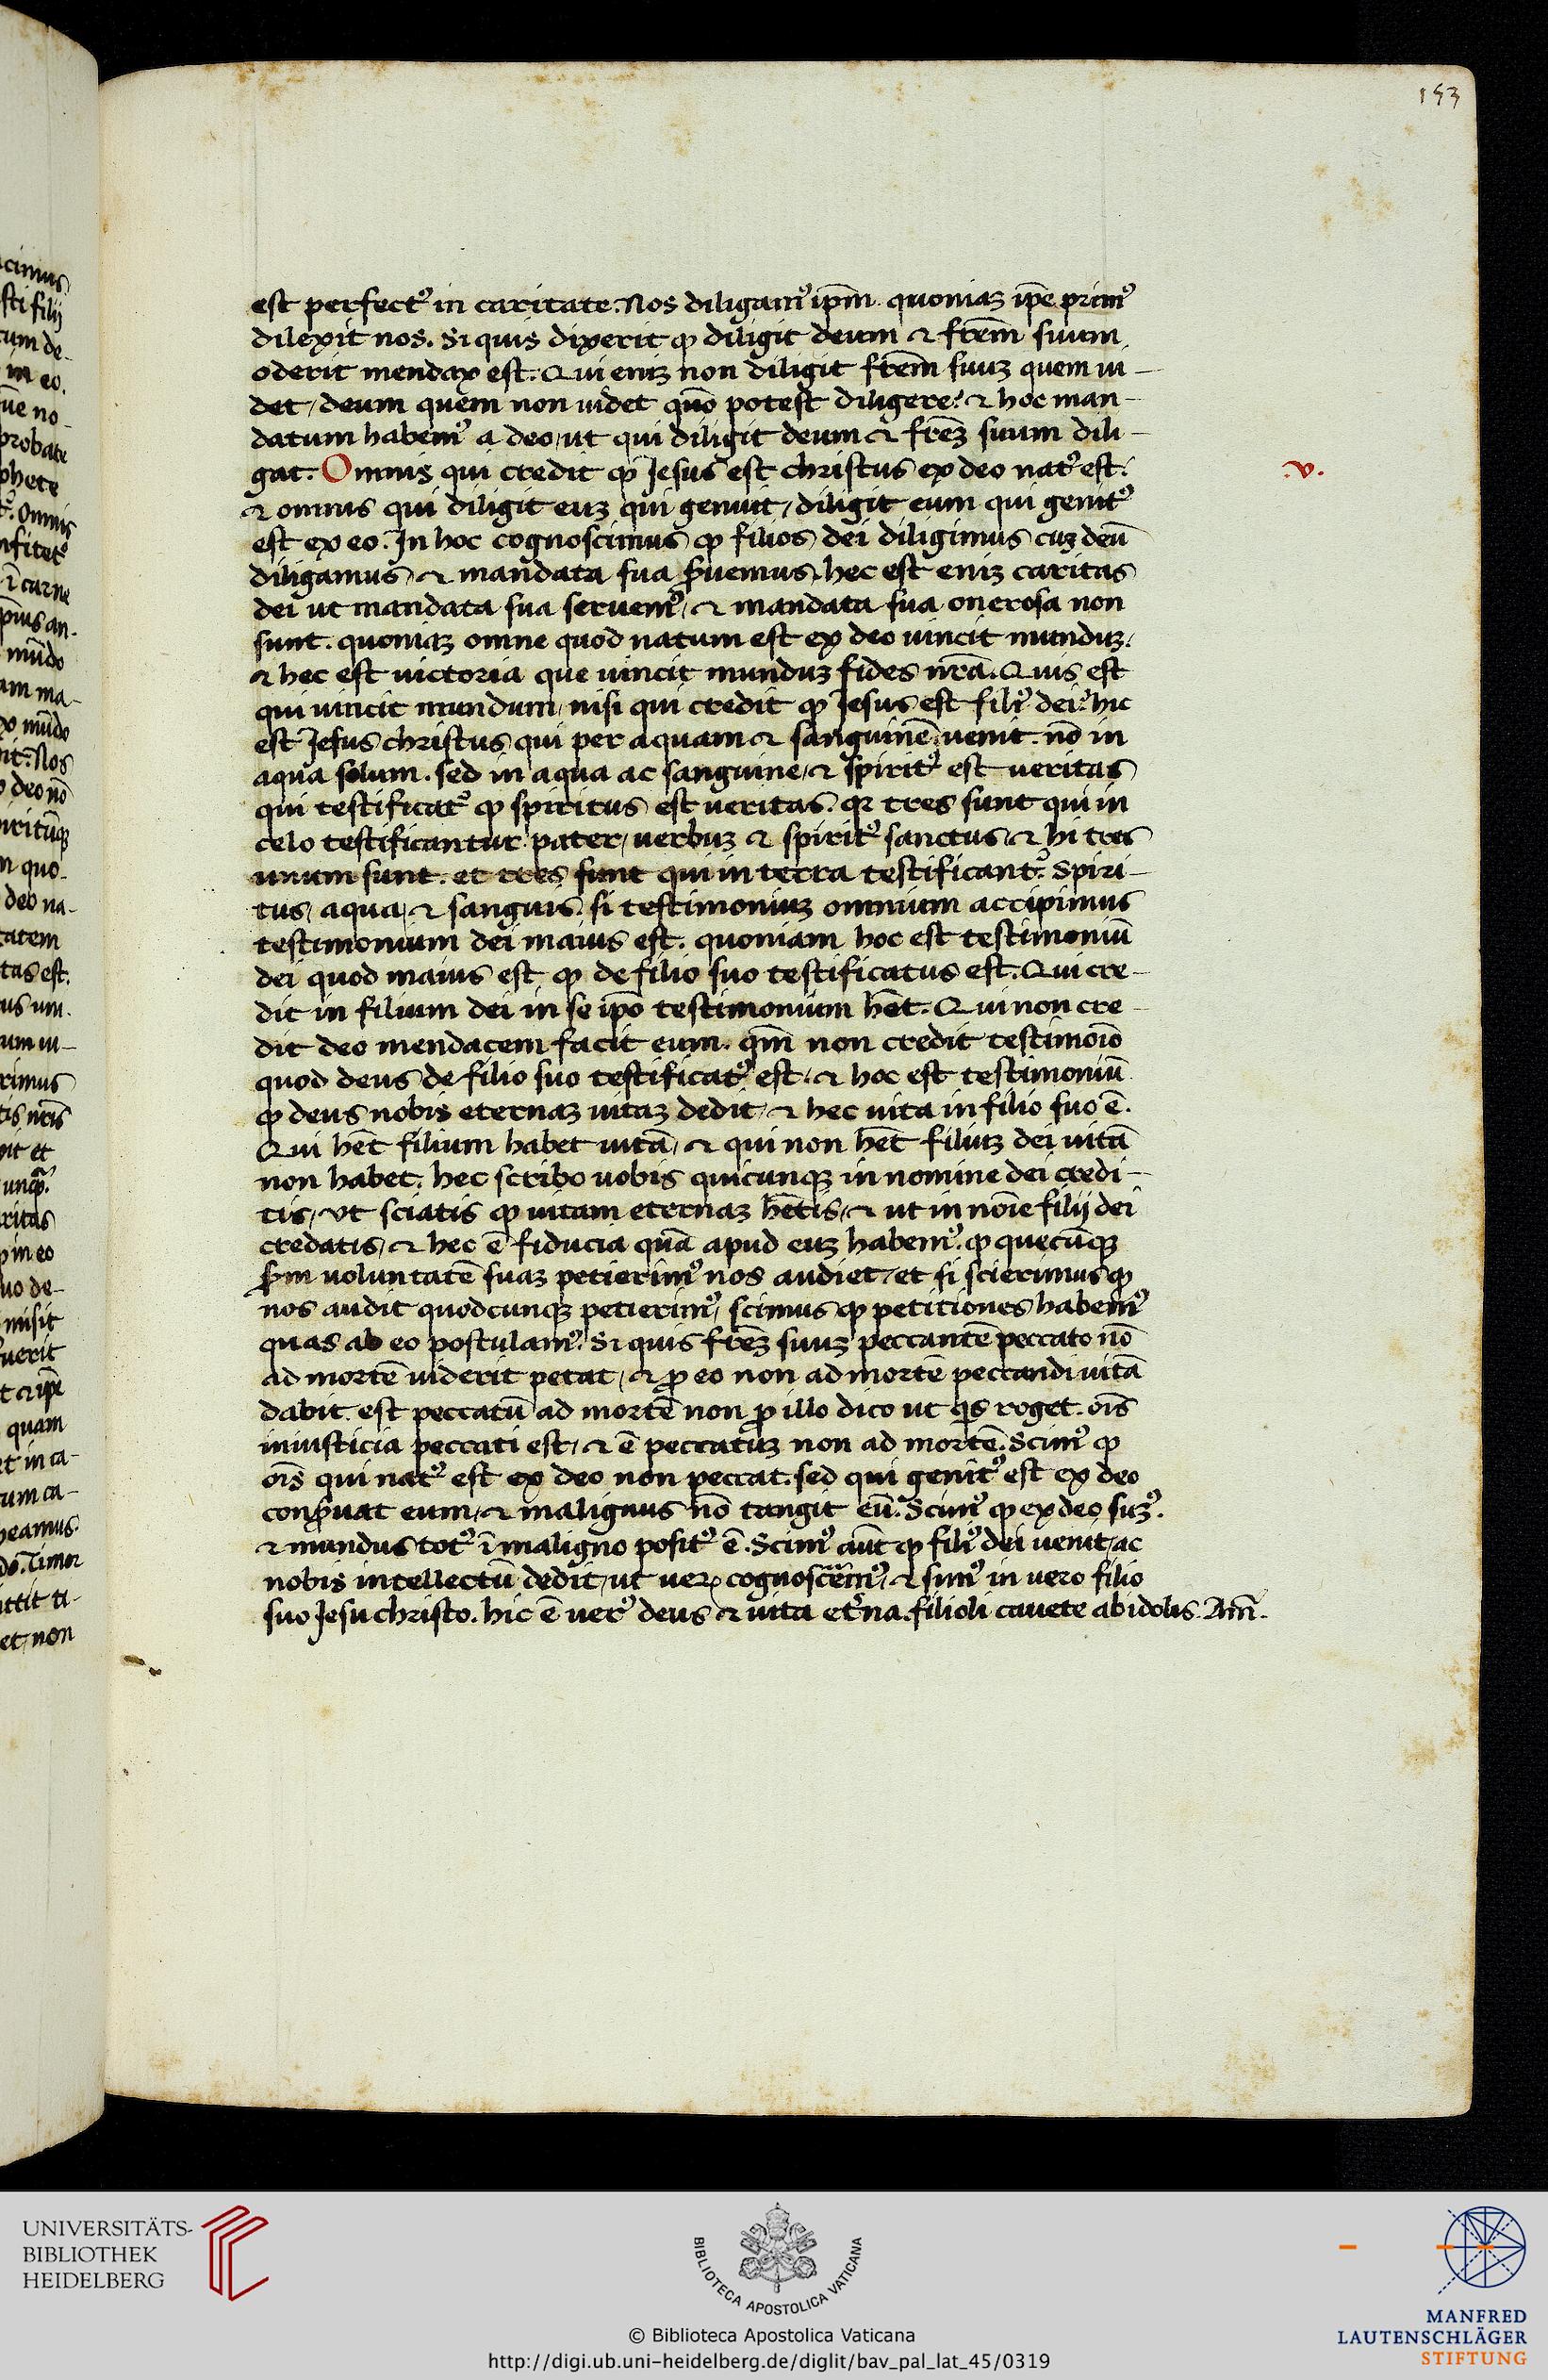 153
est perfectꝰ in caritate. Nos diligamꝰ ip̄m. quoniaꝫ ip̄e primꝰ
dilexit nos. Si quis dixerit ꝙ diligit deum ⁊ frēm suum
oderit mendax est. Qui eniꝫ non diligit frēm suuꝫ quem ui-
det, deum quem non uidet quō potest diligere? ⁊ hoc man-
datum habemꝰ a deo, ut qui diligit deum ⁊ frēꝫ suum dili-
gat. Omnis qui credit ꝙ Jesus est christus ex deo natꝰ est.
.v.
⁊ omnis qui diligit euꝫ qui genuit, diligit eum qui genitꝰ
est ex eo. In hoc cognoscimus ꝙ filios dei diligimus cuꝫ deū
diligamus, ⁊ mandata sua ẜuemus. hec est eniꝫ caritas
dei ut mandata sua seruemꝰ, ⁊ mandata sua onerosa non
sunt. quoniaꝫ omne quod natum est ex deo uincit munduꝫ.
⁊ hec est uictoria que uincit munduꝫ fides nrā. Quis est
qui uincit mundum, nisi qui credit ꝙ Jesus est filiꝰ dei? hic
est Jesus christus qui per aquam ⁊ sanguinē uenit. nō in
aqua solum. sed in aqua ac sanguine, ⁊ spiritꝰ est ueritas
qui testificatꝰ ꝙ spiritus est ueritas. qꝛ tres sunt qui in
celo testificantur pater, uerbuꝫ ⁊ spiritꝰ sanctus, ⁊ hi tres
unum sunt. et tres sunt qui in terra testificantꝰ. Spiri-
tus, aqua, ⁊ sanguis. si testimoniuꝫ omnium accipimus
testimonium dei maius est. quoniam hoc est testimoniū
dei quod maius est, ꝙ de filio suo testificatus est. Qui cre-
dit in filium dei in se ip̄o testimonium hēt. Qui non cre-
dit deo mendacem facit eum. qm̄ non credit testimoīo
quod deus de filio suo testificatꝰ est. ⁊ hoc est testimoniū
ꝙ deus nobis eternaꝫ uitaꝫ dedit, ⁊ hec uita in filio suo ē.
Qui hēt filium habet uitā, ⁊ qui non hēt filiuꝫ dei uitā
non habet. hec scribo uobis quicunqꝫ in nomine dei credi-
tis, ut sciatis ꝙ uitam eternaꝫ hētis, ⁊ ut in noīe filij dei
credatis, ⁊ hec ē fiducia quā apud euꝫ habemꝰ. ꝙ quecūqꝫ
ẜm uoluntatē suaꝫ petierimꝰ nos audiet, et si scierimus ꝙ
nos audit quodcunqꝫ petierimꝰ, scimus ꝙ petitiones habemꝰ
quas ab eo postulamꝰ. Si quis frēꝫ suuꝫ peccantē peccato nō
ad mortē uiderit petat, ⁊ ꝓ eo non ad mortē peccandi uitā
dabit. est peccatū ad mortē non ꝓ illo dico ut qͥs roget. oīs
iniusticia peccati est, ⁊ ē peccatuꝫ non ad mortē. Scimꝰ ꝙ
oīs qui natꝰ est ex deo non peccat. sed qui genitꝰ est ex deo
conẜuat eum, ⁊ malignus nō tangit eū. Scimꝰ ꝙ ex deo suꝫꝰ.
⁊ mundus totꝰ ī maligno positꝰ ē. Scimꝰ aūt ꝙ filiꝰ dei uenit, ac
nobis intellectū dedit, ut ueꝝ cognoscēmꝰ, ⁊ simꝰ in uero filio
suo Jesu christo. hic ē uerꝰ deus ⁊ uita et̾na. filioli cauete ab idolis. Am̄.
UNIVERSITÄTS-
BIBLIOTHEK
HEIDELBERG
BIBLIOTECA APOSTOLICA VATICANA
© Biblioteca Apostolica Vaticana
http://digi.ub.uni-heidelberg.de/diglit/bav_pal_lat_45/0319
MANFRED
LAUTENSCHLÄGER
STIFTUNG